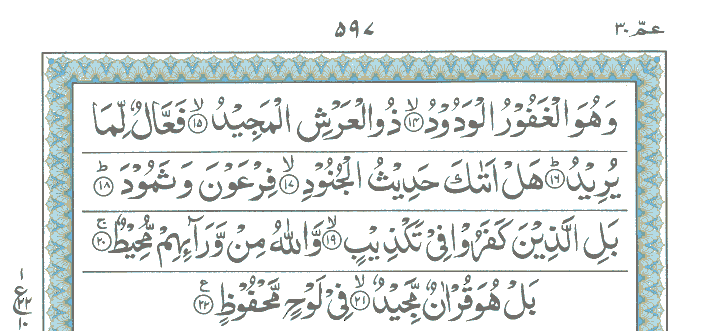 عمّ ٣٠ ٥٩٧
وَهُوَ الْغَفُوْرُ الْوَدُوْدُ ۙ﴿١٤﴾ ذُو الْعَرْشِ الْمَجِيْدُ ۙ﴿١٥﴾ فَعَّالٌ لِّمَا
يُرِيْدُ ؕ﴿١٦﴾ هَلْ اَتٰىكَ حَدِيْثُ الْجُنُوْدِ ۙ﴿١٧﴾ فِرْعَوْنَ وَ ثَمُوْدَ ؕ﴿١٨﴾
بَلِ الَّذِيْنَ كَفَرُوْا فِيْ تَكْذِيْبٍ ۙ﴿١٩﴾ وَّاللّٰهُ مِنْ وَّرَآىِٕهِمْ مُّحِيْطٌ ۚ﴿٢٠﴾
بَلْ هُوَ قُرْاٰنٌ مَّجِيْدٌ ۙ﴿٢١﴾ فِيْ لَوْحٍ مَّحْفُوْظٍ ﴿٢٢﴾ع
١
ع
٢٢
١٠